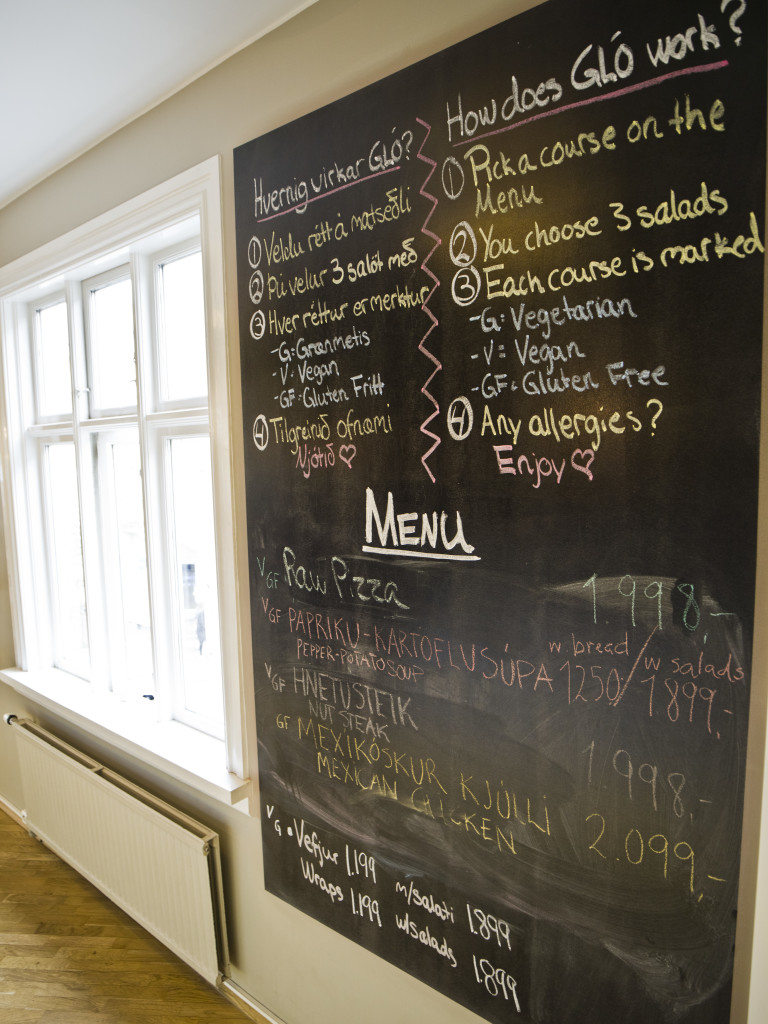 Hvernig virkar GLÓ?
① Veldu rétt á matseðli
② Þú velur 3 salöt með
③ Hver réttur er merktur
-G= Grænmetis
-V= Vegan
-GF= Gluten Fritt
④ Tilgreinið ofnæmi
Njótið ♡
How does GLÓ work?
① Pick a course on the
Menu
② You choose 3 salads
③ Each course is marked
-G= Vegetarian
-V= Vegan
-GF= Gluten Free
④ Any allergies?
Enjoy ♡
MENU
V GF Raw Pizza 1.998,-
V GF PAPRIKU-KARTOFLUSÚPA w. bread 1250/ w salads 1899,-
PEPPER-POTATO SOUP
V GF HNETUSTEIK 1.998,-
NUT STEAK
GF MEXIKÓSKUR KJÚLLI 2.099,-
MEXICAN CHICKEN
V G • Vefjur 1.199 m/salati 1.899
Wraps 1.199 w/salads 1.899